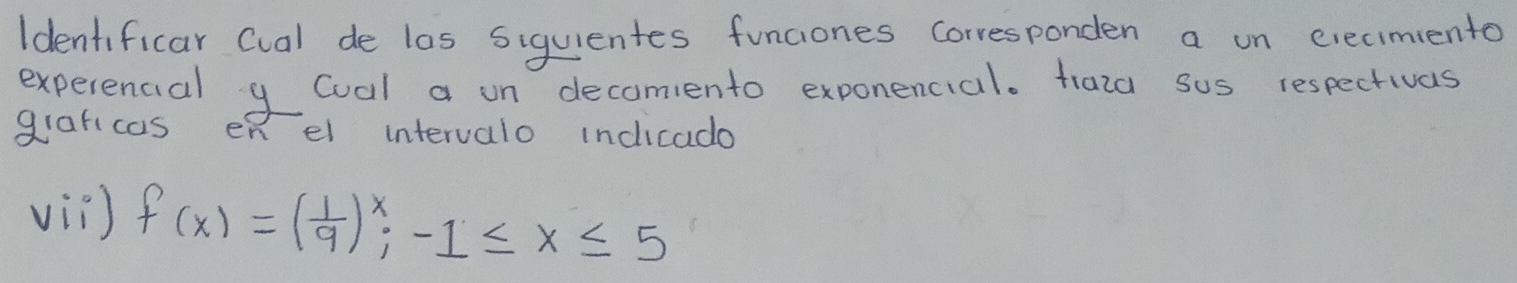 Identificar Cual de las siguientes funciones Corresponden a un crecimiento
experencial y Cual a un decamiento exponencial. traza sus respectivas
graficas en el intervalo indicado
vii) f(x) = (1/9)^x; -1 ≤ x ≤ 5